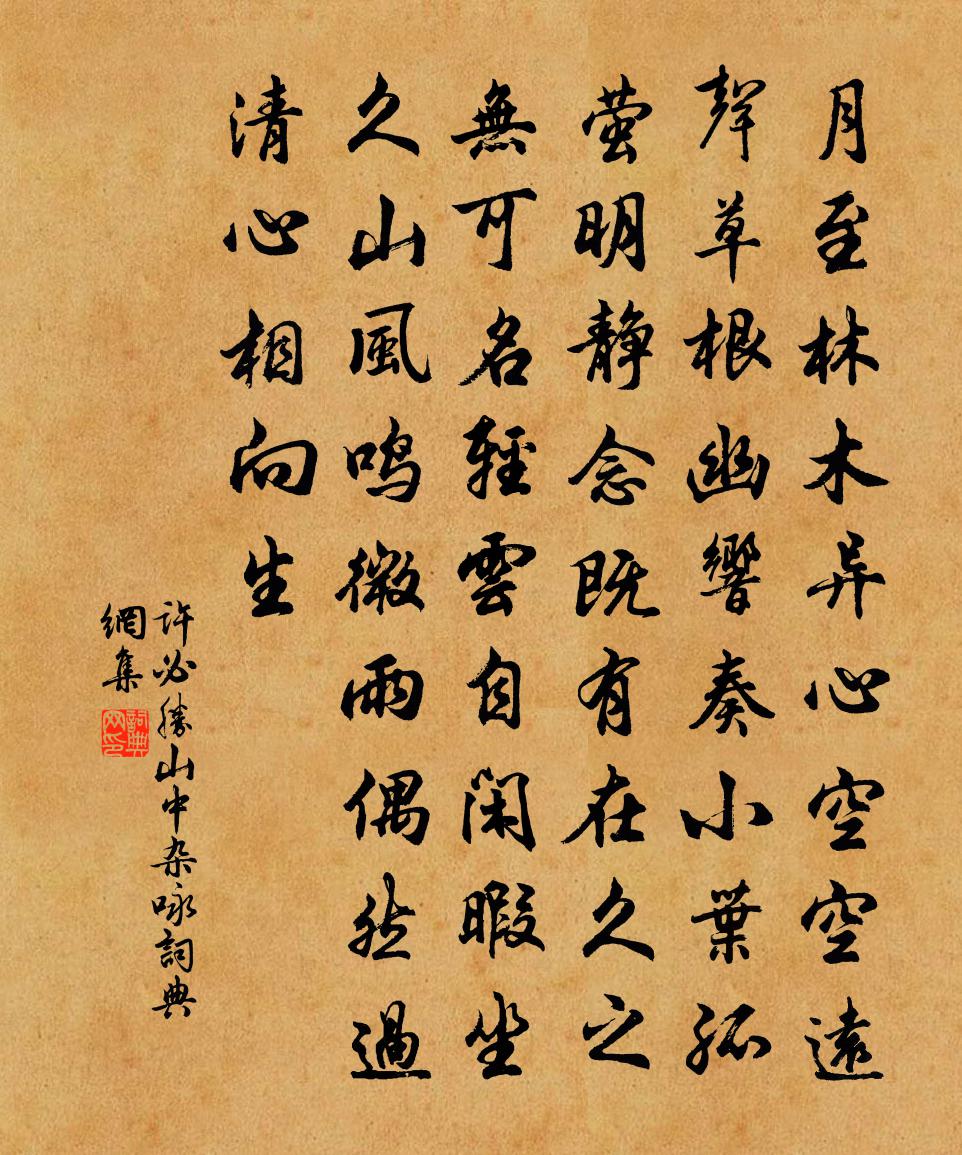 月至林木异心空空遠
聲草根幽響奏小葉孤
萤明静念既有在久之
無可名輕雲自闲暇坐
久山風鸣微雨偶然過
清心相向生
许必勝山中杂咏詞典
網集
詞典网印